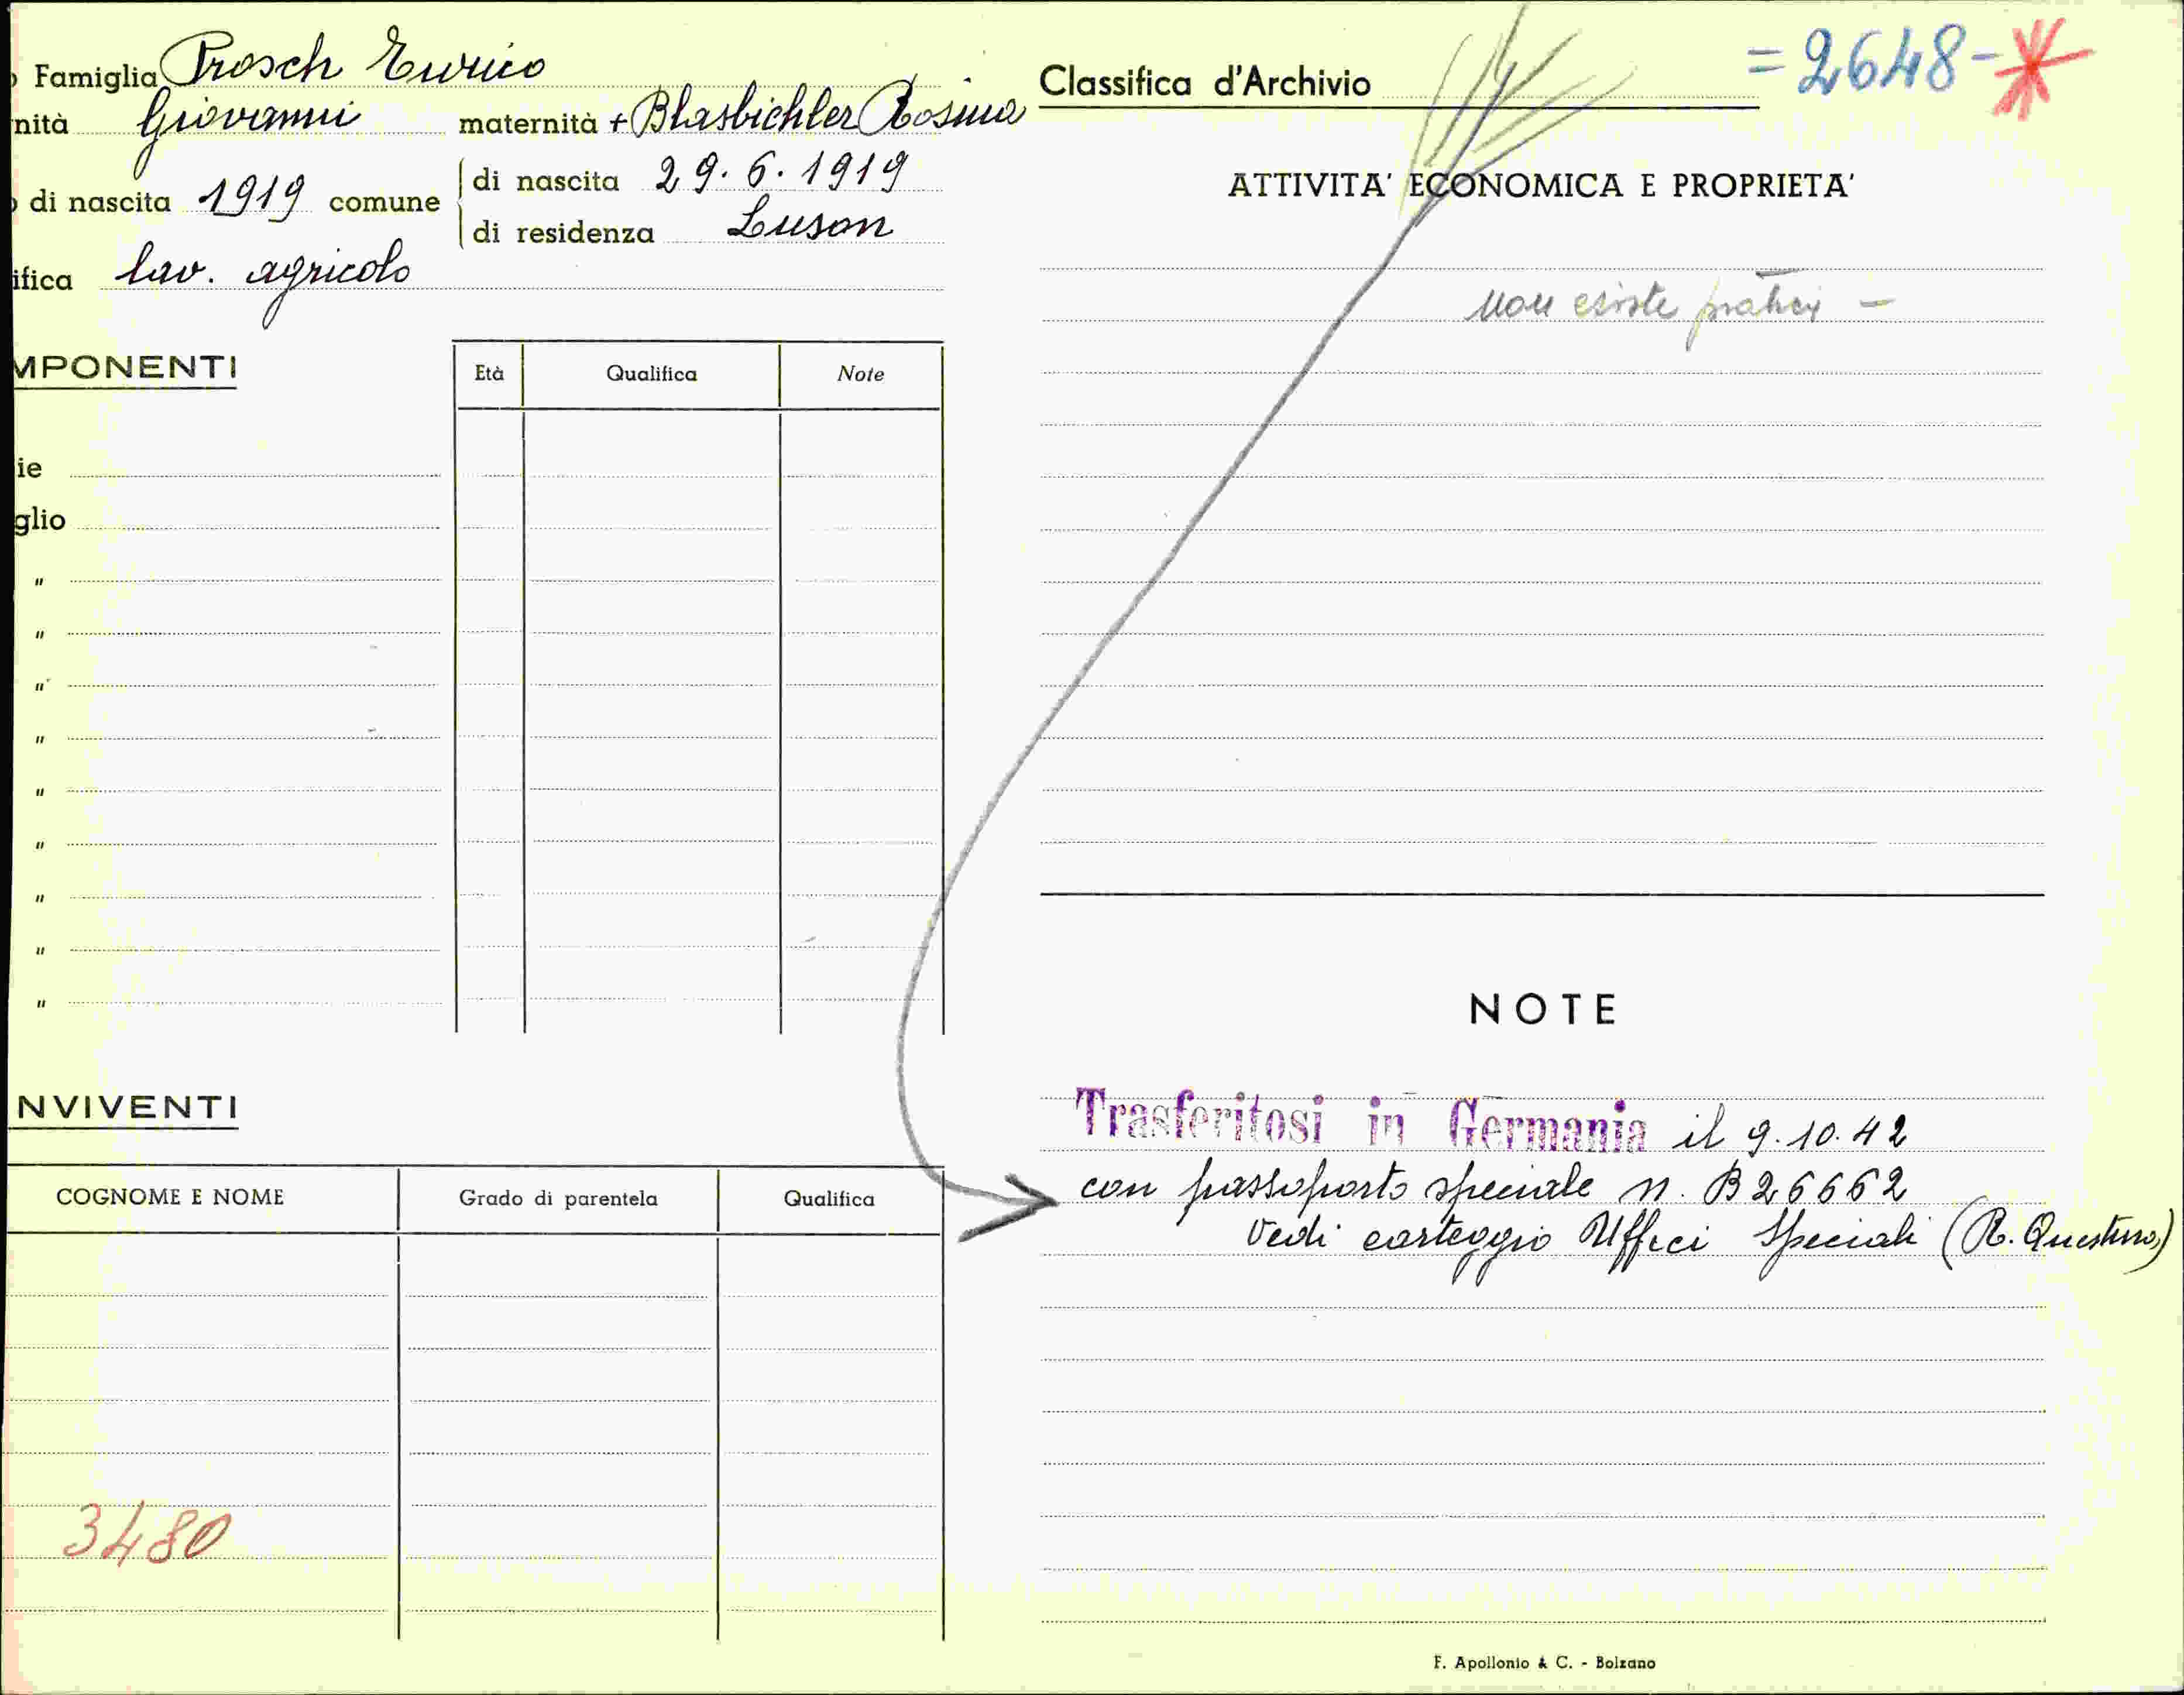 Famiglia Prosch Enrico
nità Giovanni maternità + Blasbichler Rosina
di nascita 1919 comune di nascita 29.6.1919
di residenza Luson
ifica lav. agricolo
MPONENTI
Età Qualifica Note
ie
glio
"
"
"
"
"
"
"
"
"
NVIVENTI
COGNOME E NOME Grado di parentela Qualifica
3480
Classifica d'Archivio = 2648 -
ATTIVITA' ECONOMICA E PROPRIETA'
non esiste pratica -
NOTE
Trasferitosi in Germania il 9.10.42
con passaporto speciale n. B 26662
Vedi carteggio Uffici Speciali (R. Questura)
F. Apollonio & C. - Bolzano